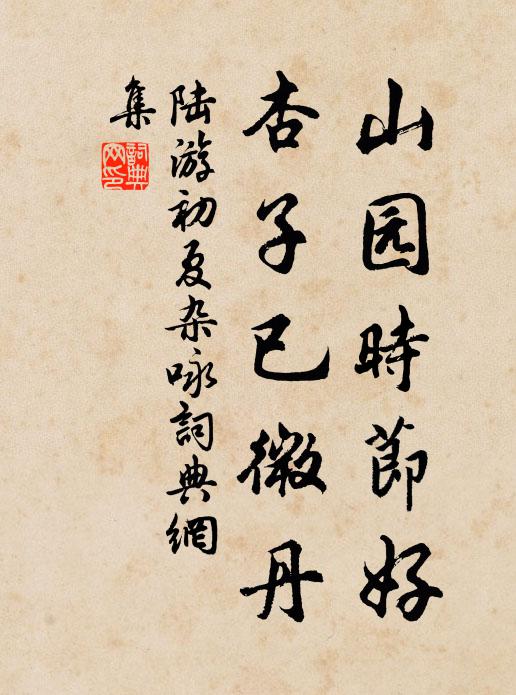 山园時節好
杏子已微丹
陆游初夏杂咏詞典網
集
詞典
网印